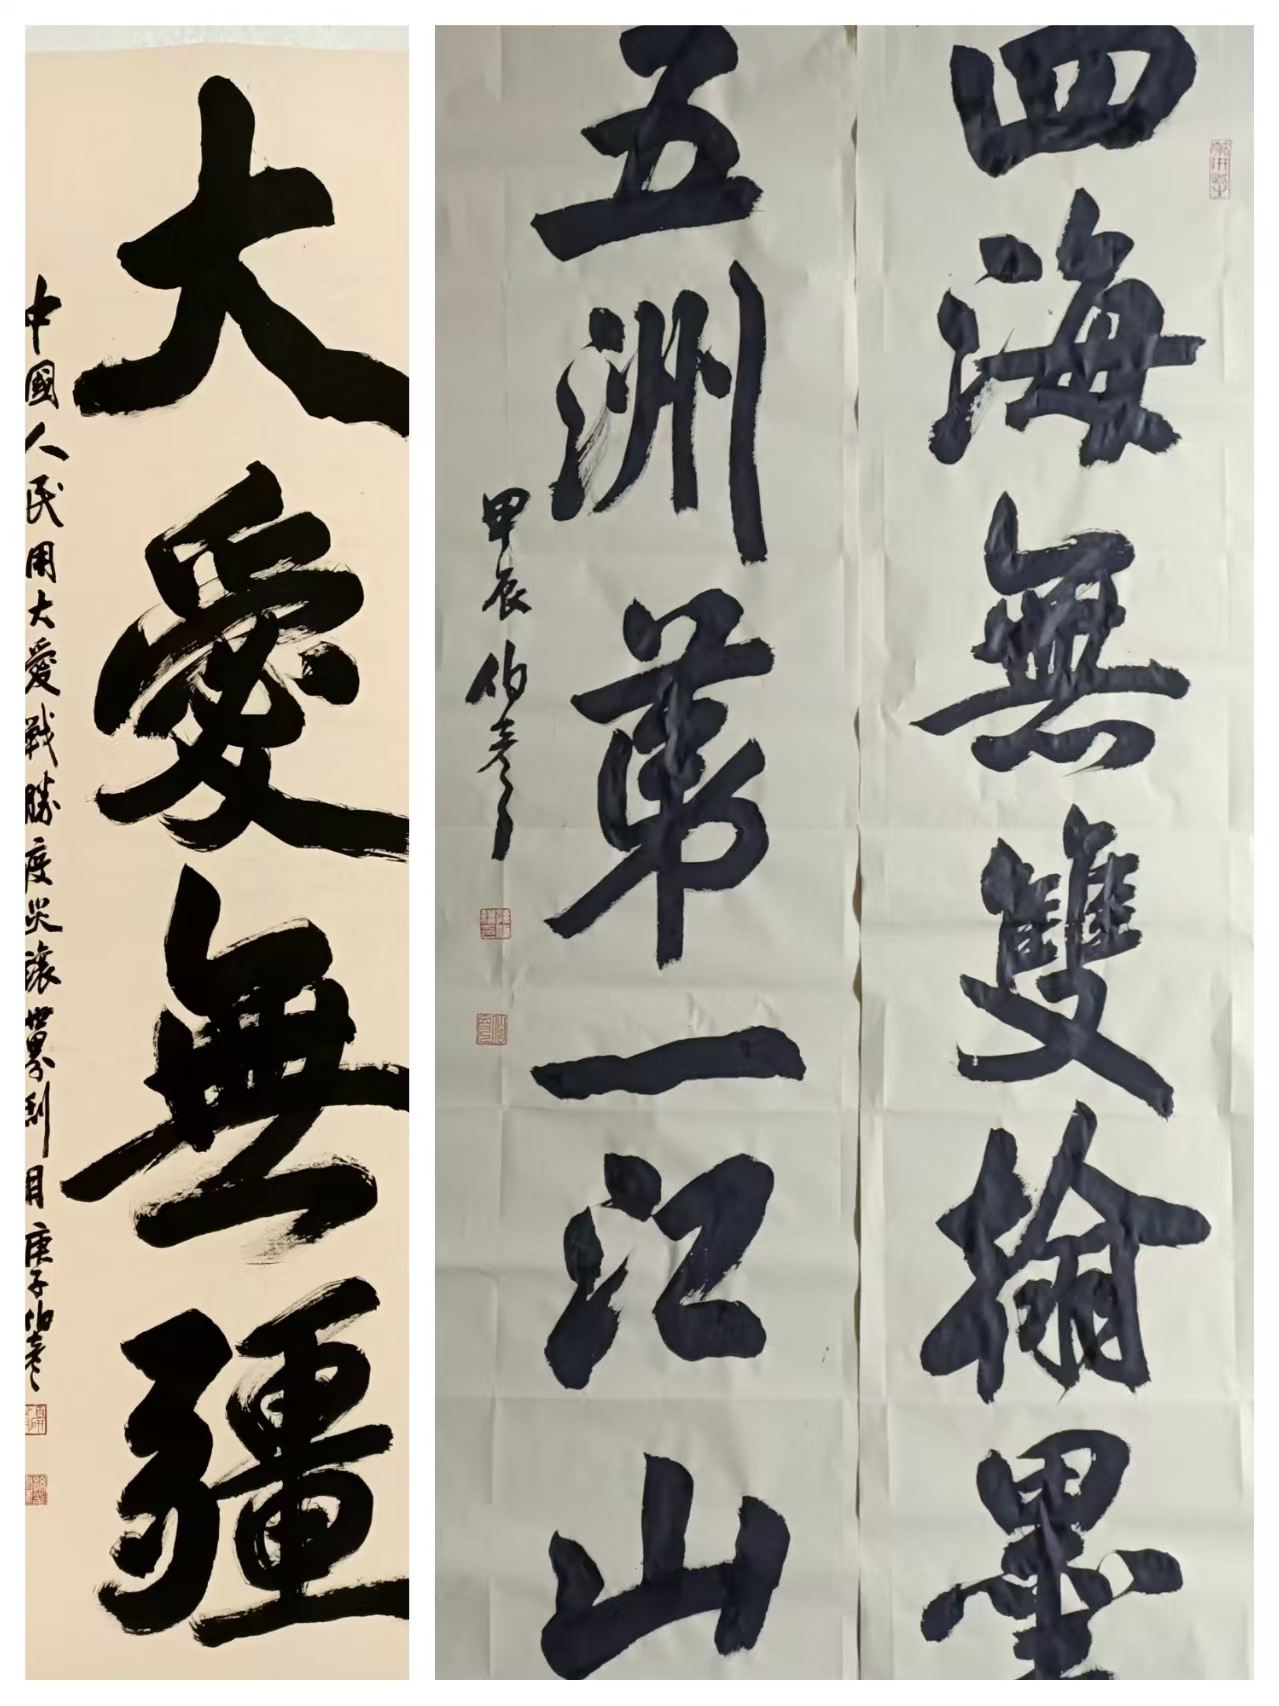 大愛無疆
中國人民用大愛戰勝疫災讓世界刮目庚子伯彥
四海無雙翰墨
五洲第一江山
甲辰伯彥